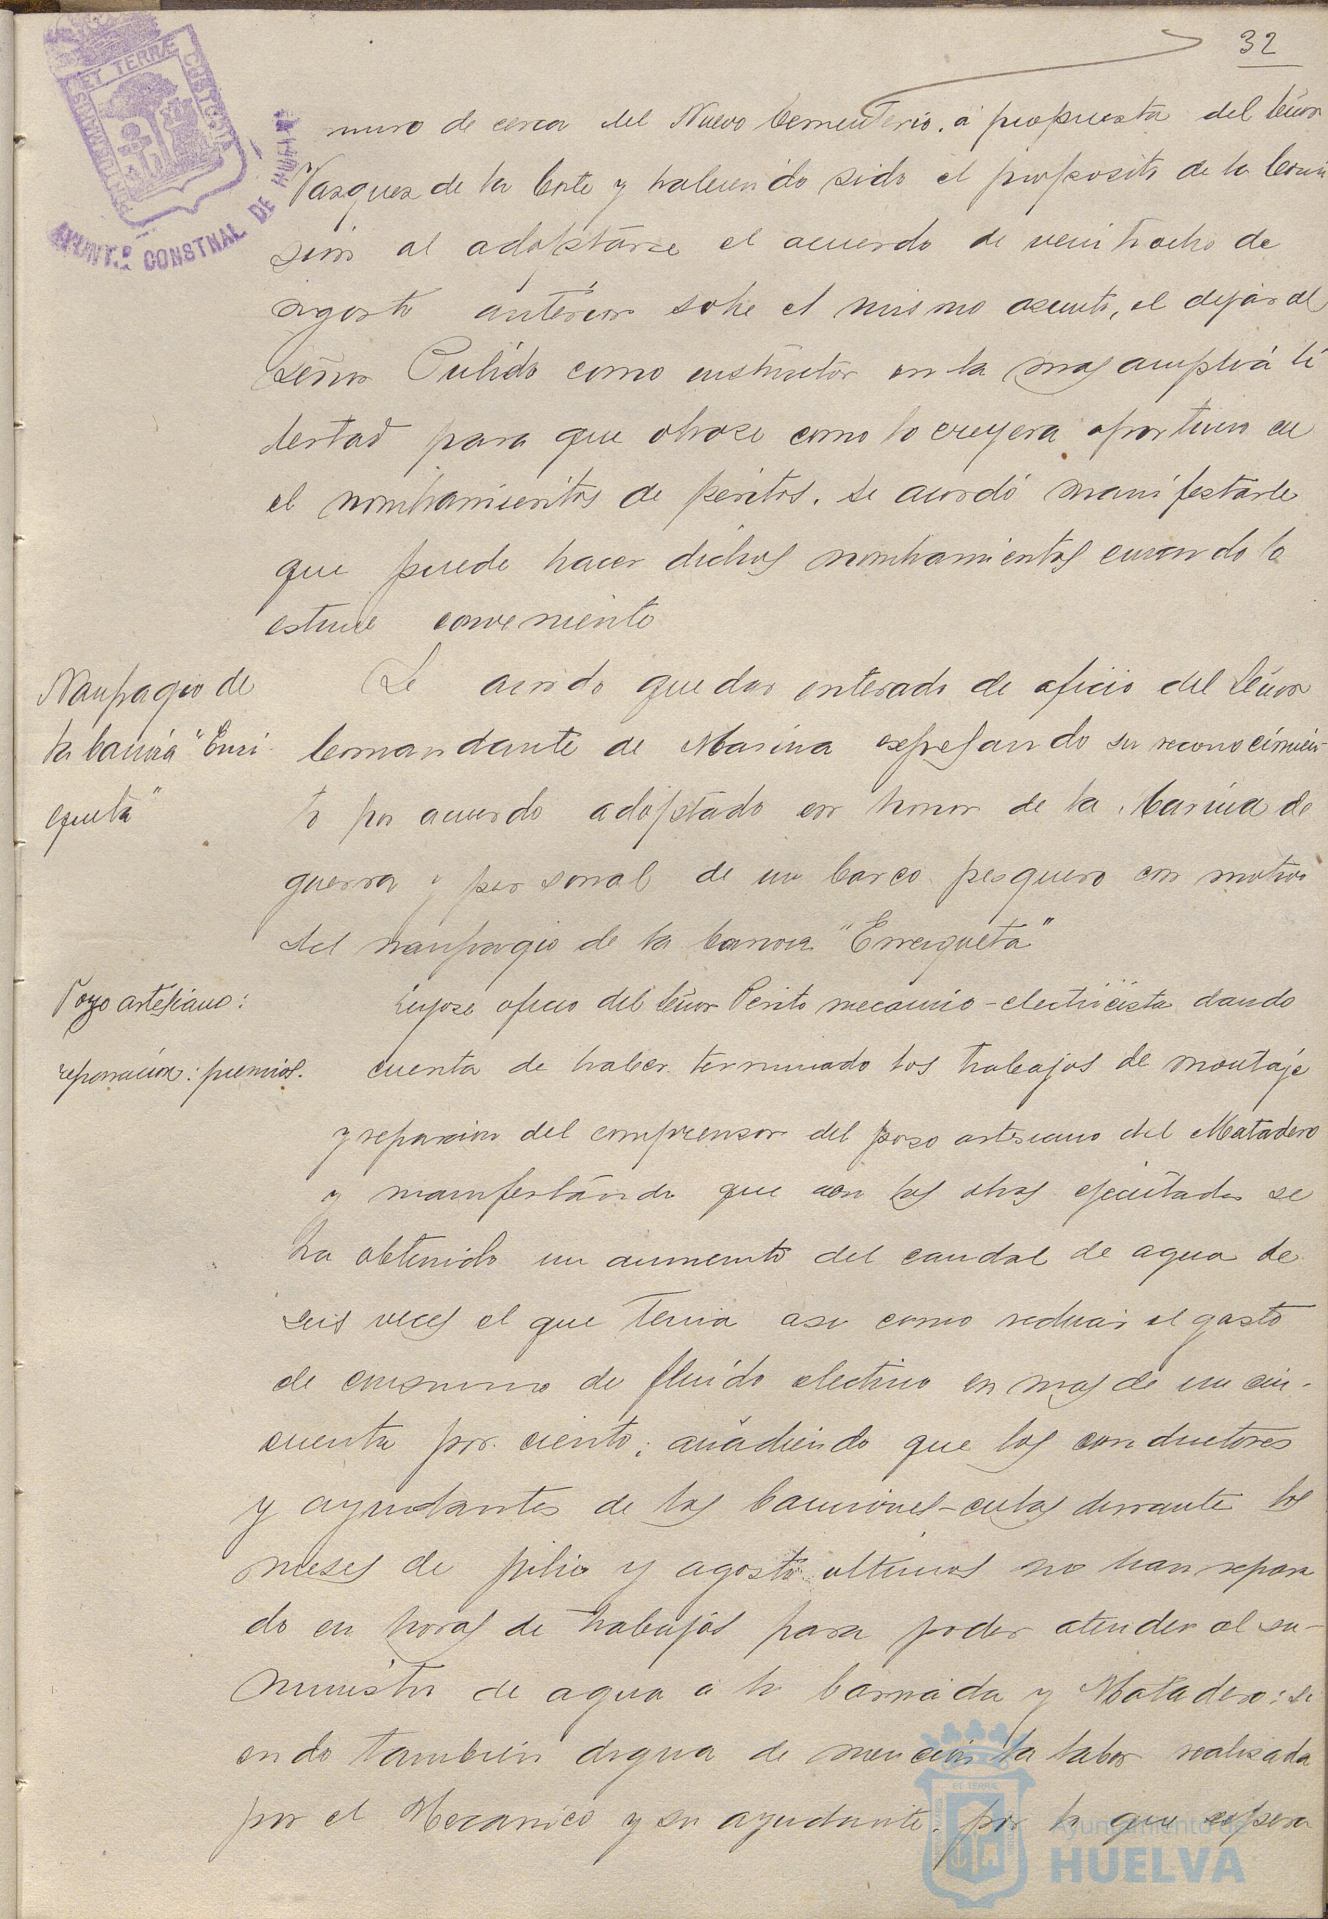 32
muro de cerca del Nuevo Cementerio. a propuesta del Señor
Vazquez de la Corte y habiendo sido el proposito de la Comi
sión al adoptarse el acuerdo de veintiocho de
agosto anterior sobre el mismo asunto, el dejar al
señor Pulido como instructor en la mas amplia li
bertad para que obrase como lo creyera oportuno en
el nombramientos de peritos. Se acordó manifestarle
que puede hacer dichos nombramientos cuando lo
estime conveniente
Naufragio de
la canoa "Enri-
queta"
Se acordo quedar enterado de oficio del Señor
Comandante de Marina expresando su reconocimien-
to por acuerdo adoptado en honor de la Marina de
guerra y personal de un barco pesquero con motivo
del naufragio de la canoa "Enriqueta"
Pozo artesiano:
reparación: premios.
Leyose oficio del Señor Perito mecanico-electricista dando
cuenta de haber terminado los trabajos de montaje
y reparacion del compresor del pozo artesiano del Matadero
y manifestando que con las obras ejecutadas se
ha obtenido un aumento del caudal de agua de
seis veces el que tenia asi como reducir el gasto
de consumo de fluido electrico en mas de un cin-
cuenta por ciento; añadiendo que los conductores
y ayudantes de los camiones-cubas durante los
meses de julio y agosto ultimos no han repara
do en horas de trabajos para poder atender al su-
ministro de agua a la barriada y Matadero: si
endo tambien digna de mención la labor realizada
por el Mecanico y su ayudante. por lo que espera
SUI URBIUM
ET TERRÆ
CUSTODIA
AYUNT.º CONSTNAL DE HUELVA
Ayuntamiento de
HUELVA